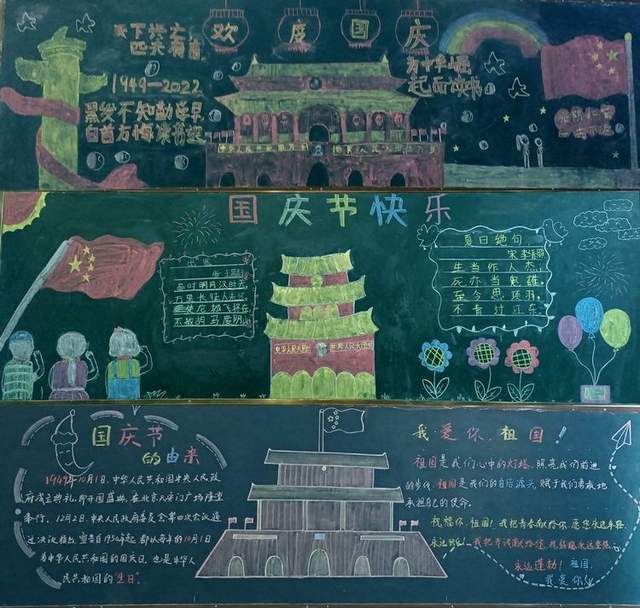 欢度国庆
1949—2022
黑发不知勤学早
白首方悔读书迟
为中华崛
起而读书
国庆节快乐
秦时明月汉时关
万里长征人未还
不教胡马度阴山
夏日绝句
宋 李清照
生当作人杰，
死亦为鬼雄。
至今思项羽，
不肯过江东。
国庆节
的由来
1949年10月1日，中华人民共和国中央人民政
府成立典礼，即开国盛典，在北京天安门广场隆重
举行。12月2日，中央人民政府委员会第四次会议通
过决议指出，宣告自1950年起，即以每年的10月1日
为中华人民共和国的国庆日，也是中华人
民共和国的“生日”。
我爱你，祖国！
祖国是我们心中的灯塔，照亮我们前进
的步伐，祖国是我们的自信源泉，赋予我们勇敢地
承担自己的使命。
祝福你，祖国！我把青春献给你，愿您永远年轻，
永远蓬勃！祖国，
我爱你！